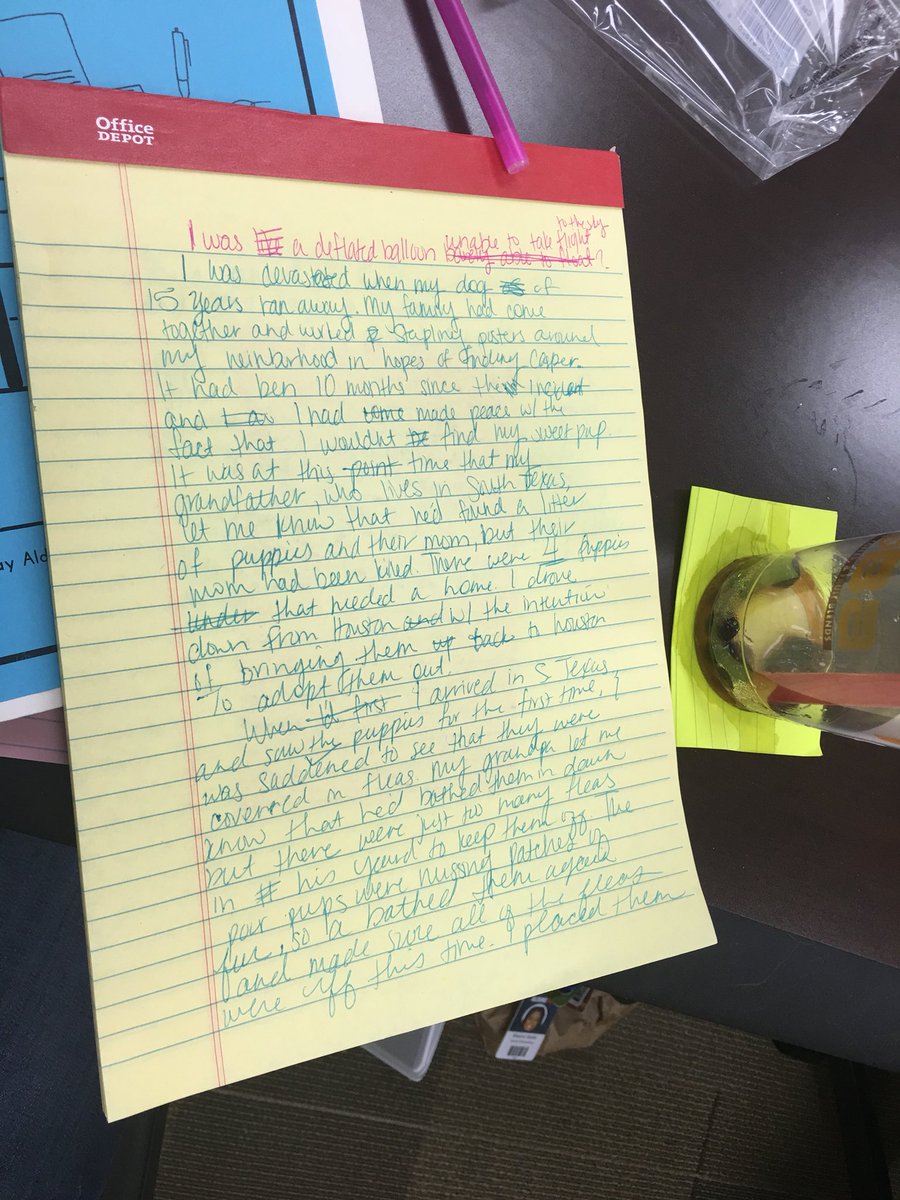 Office
DEPOT
to the sky
I was a deflated balloon unable to take flight
being able to float?
I was devastated when my dog of
15 years ran away. My family had come
together and worked stapling posters around
my neinbarhood in hopes of finding Casper.
It had ben 10 months since the incident
and I had come made peace w/ the
fact that I wouldnt be find my sweet pup.
It was at this point time that my
grandfather, who lives in South Texas,
let me know that he'd found a litter
of puppies and their mom, but their
mom had been killed. There were 4 puppies
under that needed a home. I drove
down from Houston and w/ the intention
of bringing them up back to houston
To adopt them out.
When I'd first I arrived in S Texas,
and saw the puppies for the first time, I
was saddened to see that they were
coverred in fleas. My grandpa let me
know that he'd bathed them in dawn
but there were just too many fleas
in his yeard to keep them off. The
poor pups were missing patches of
fur, so I bathed them again
and made sure all of the fleas
were off this time. I placed them
ay Ald
BLENDS